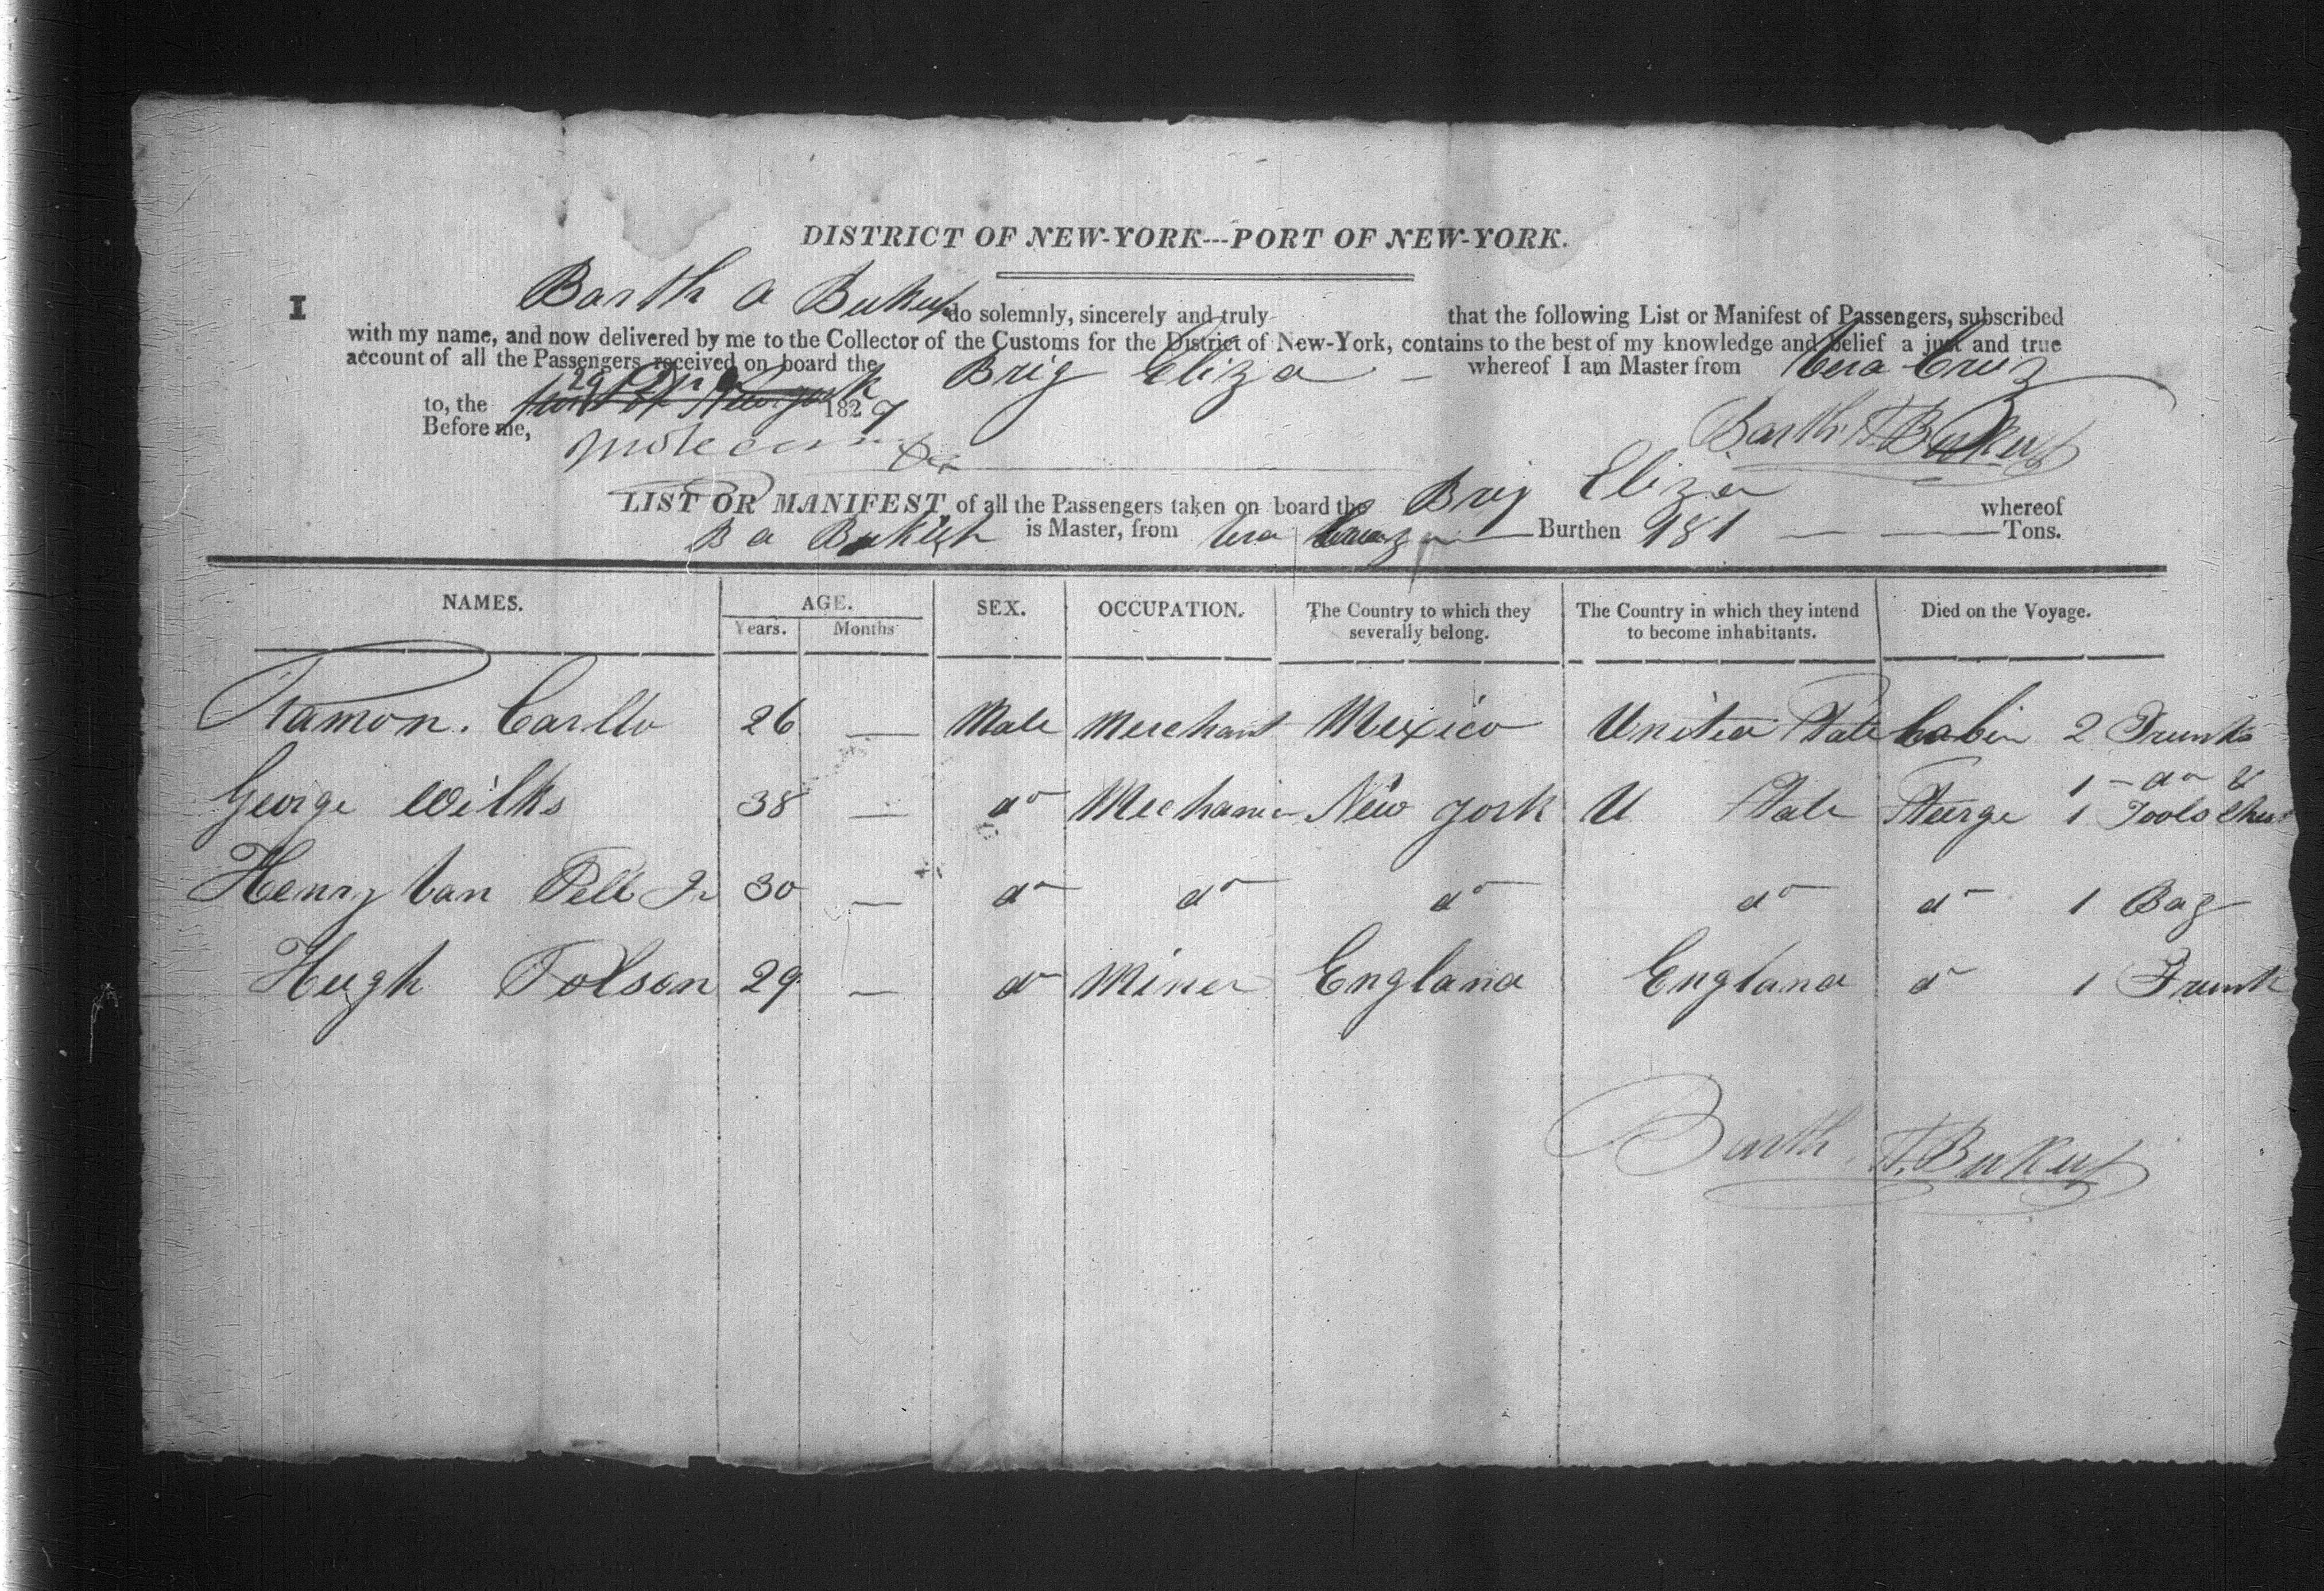 DISTRICT OF NEW-YORK---PORT OF NEW-YORK.
I Barth A do solemnly, sincerely and truly that the following List or Manifest of Passengers, subscribed
with my name, and now delivered by me to the Collector of the Customs for the District of New-York, contains to the best of my knowledge and belief a just and true
account of all the Passengers received on board the Brig Eliza whereof I am Master from Vera Cruz
to, the 29 1829
Before me, Barth. A.
LIST OR MANIFEST, of all the Passengers taken on board the Brig Eliza whereof
B A is Master, from Vera Cruz Burthen 181 Tons.
NAMES. AGE. SEX. OCCUPATION. The Country to which they severally belong. The Country in which they intend to become inhabitants. Died on the Voyage.
Years. Months
Ramon. Carllo 26 — Male Merchant Mexico United State Cabin 2 Trunks
George Wilks 38 — do Mechanic New york U State Steerge 1 - do & 1 Tools Chest
Henry Van Pelt Jr 30 — do do do do do 1 Bag
Hugh Tolson 29 — do Miner England England do 1 Trunk
Barth. A.